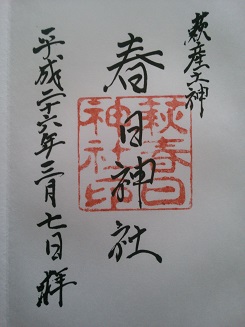 萩産土神
春日神社
萩春日
神社印
平成二十六年三月七日拝